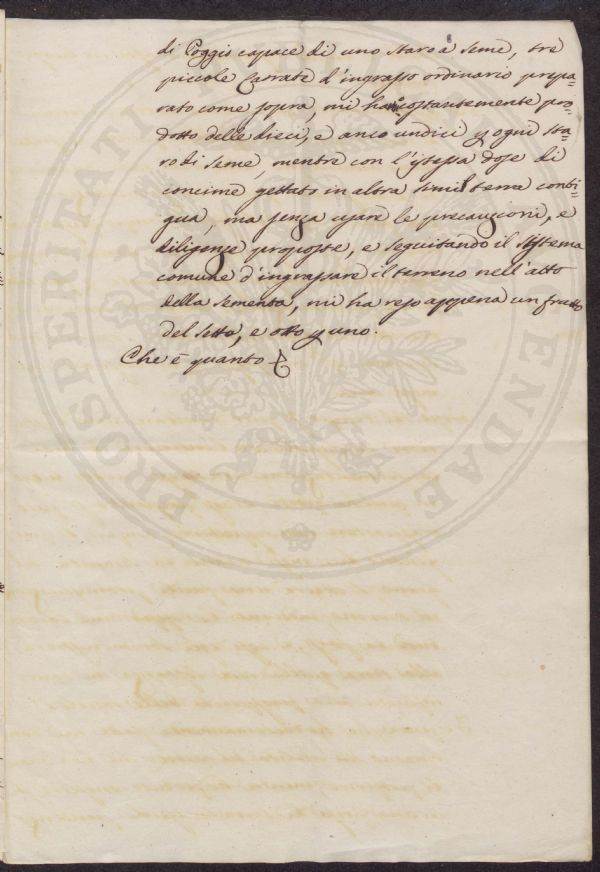 di Poggio capace di uno staro a seme, tre
piccole Carrate d'ingrasso ordinario prepa=
rato come sopra, mi ha costantemente pro=
dotto delle dieci, e anco undici p ogni sta=
ro di seme, mentre con l'istessa dose di
concime gettato in altra simil terra conti=
gua, ma senza usare le precauzioni, e
diligenze proposte, e seguitando il sistema
comune d'ingrassare il terreno nell'atto
della sementa, mi ha reso appena un frutto
del sette, e otto p uno.
Che è quanto
PROSPERITATI PUBLICAE AUGENDAE